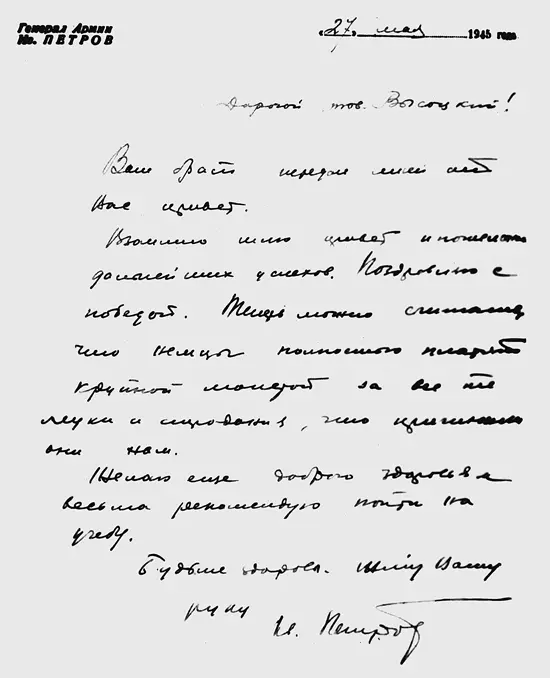 Генерал Армии
Ив. ПЕТРОВ
„27“ мая 1945 года
Дорогой тов. Высоцкий!
Ваш брат передал мне от
Вас привет.
Взаимно шлю привет и пожелания
дальнейших успехов. Поздравляю с
победой. Теперь можно считать,
что немцы полностью платят
крупной монетой за все те
муки и страдания, что причинили
они нам.
Желаю еще доброго здоровья и
весьма рекомендую пойти на
учебу.
Будьте здоровы. Жму Вашу
руку
Ив. Петров